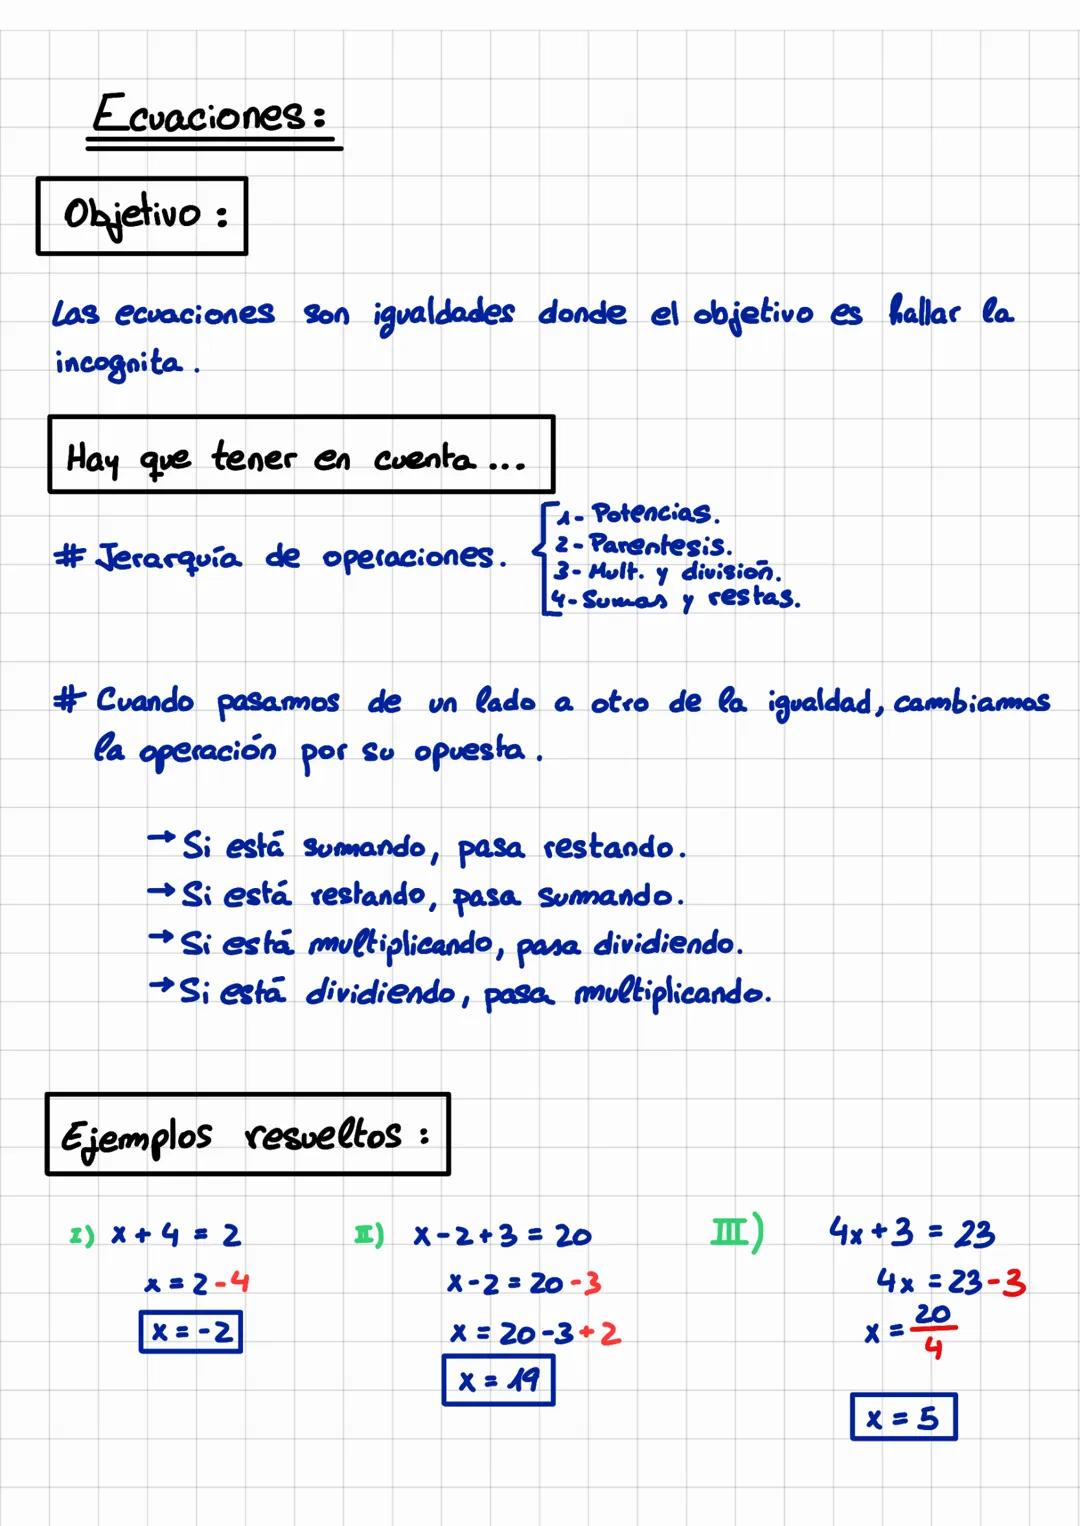 Ecuaciones:
Objetivo :
Las ecuaciones son igualdades donde el objetivo es hallar la
incognita.
Hay que tener en cuenta ...
# Jerarquía de operaciones.
1- Potencias.
2- Parentesis.
3- Mult. y división.
4- Sumas y restas.
# Cuando pasamos de un lado a otro de la igualdad, cambiamos
la operación por su opuesta.
→ Si está sumando, pasa restando.
→ Si está restando, pasa sumando.
→ Si está multiplicando, pasa dividiendo.
→ Si está dividiendo, pasa multiplicando.
Ejemplos resueltos :
I) x + 4 = 2
x = 2 - 4
x = -2
II) x - 2 + 3 = 20
x - 2 = 20 - 3
x = 20 - 3 + 2
x = 19
III) 4x + 3 = 23
4x = 23 - 3
x = 20/4
x = 5